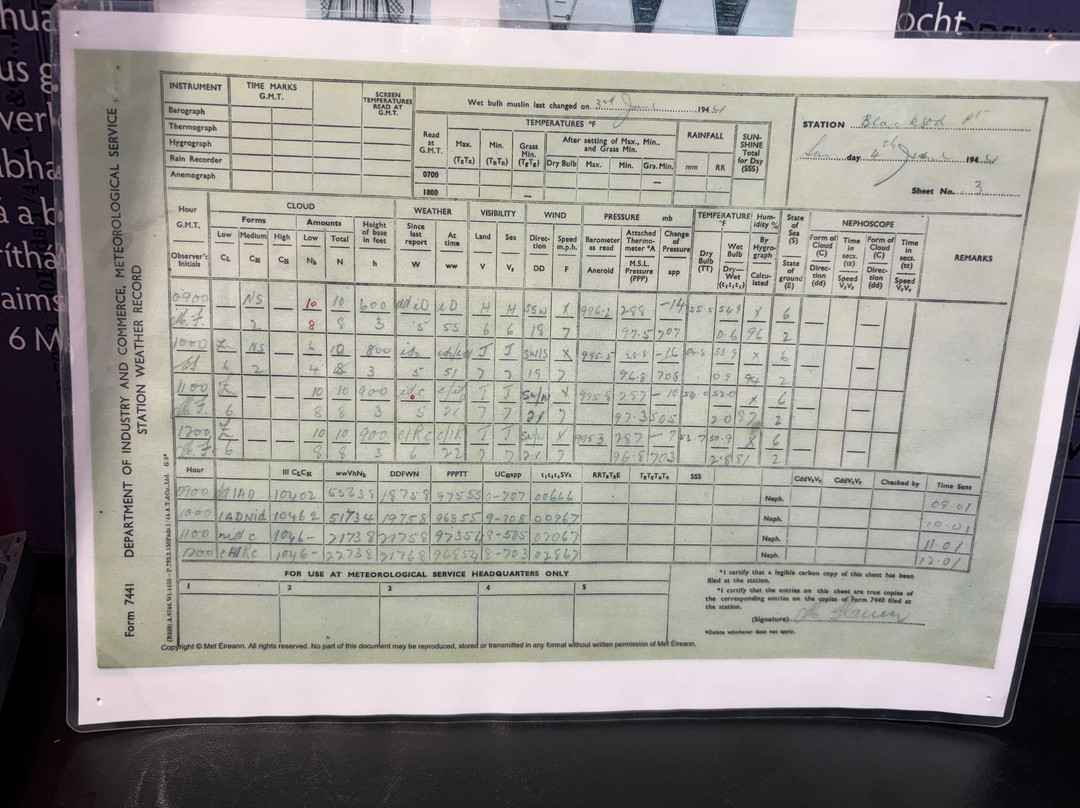 ocht
DEPARTMENT OF INDUSTRY AND COMMERCE, METEOROLOGICAL SERVICE
STATION WEATHER RECORD
Form 7441
INSTRUMENT TIME MARKS G.M.T. SCREEN TEMPERATURES READ AT G.M.T.
Barograph
Thermograph
Hygrograph
Rain Recorder
Anemograph
Wet bulb muslin last changed on 3rd June 194
TEMPERATURES °F RAINFALL SUNSHINE Total for Day (SSS)
Read at G.M.T. Max. Min. Grass Min. After setting of Max., Min., and Grass Min.
Dry Bulb Max. Min. Gra. Min. mm RR
0700
1800
STATION Blacksod Pt
Sun day 4th June 194
Sheet No. 3
Hour G.M.T. CLOUD WEATHER VISIBILITY WIND PRESSURE mb TEMPERATURE °F Humidity % State of Sea (S) NEPHOSCOPE REMARKS
Forms Amounts Height of base in feet Since last report At time Land Sea Direction Speed m.p.h. Barometer as read Attached Thermometer °A Change of Pressure Dry Bulb (TT) Wet Bulb By Hygrograph Form of Cloud (C) Time in secs. (tt) Form of Cloud (C) Time in secs. (tt)
Low Medium High Low Total
Observer's Initials CL CM CH Nh N h W ww V Vs DD F Aneroid M.S.L. Pressure (PPP) app Dry—Wet Calculated State of ground (E) Direction (dd) Speed VsVs Direction (dd) Speed VsVs
0900 NS 10 10 600 H H SSW X 996.2 288 -14 X 6
M.F. 2 8 8 3 5 55 6 6 18 7 97.5 707 0.6 96 2
1000 NS 10 800 J J X 995.5 -16 X 6
6 2 4 3 5 51 7 7 19 7 96.8 708 0.9 94 2
1100 10 10 900 J J X 995.8 287 -10 X 6
M.F. 6 8 8 3 5 21 7 7 21 7 97.3 505 2.0 87 2
1200 10 10 900 J J X 995.3 287 -7 53.7 50.9 X 6
M.F. 6 8 8 3 6 22 7 7 21 7 96.8 703 2.8 81 2
Hour III CLCM wwVhNh DDFWN PPPTT UCHapp RRTETEE SSS CddVsVs CddVsVs Checked by Time Sent
0900 10402 18758 97555 0-707 00666 Neph. 09.01
1000 10462 51734 19758 96855 9-708 00967 Neph. 10.01
1100 1046- 21738 21758 97354 8-505 02067 Neph. 11.01
1200 1046- 22738 21768 96854 8-703 02867 Neph. 12.01
FOR USE AT METEOROLOGICAL SERVICE HEADQUARTERS ONLY
1 2 3 4 5
*I certify that a legible carbon copy of this sheet has been filed at the station.
*I certify that the entries on this sheet are true copies of the corresponding entries on the copies of Form 7440 filed at the station.
(Signature)
*Delete whichever does not apply.
Copyright © Met Éireann. All rights reserved. No part of this document may be reproduced, stored or transmitted in any format without written permission of Met Éireann.